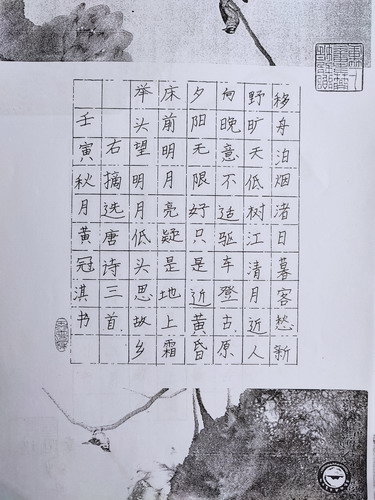 移舟泊烟渚日暮客愁新
野旷天低树江清月近人
向晚意不适驱车登古原
夕阳无限好只是近黄昏
床前明月亮疑是地上霜
举头望明月低头思故乡
右摘选唐诗三首
壬寅秋月黄冠淇书